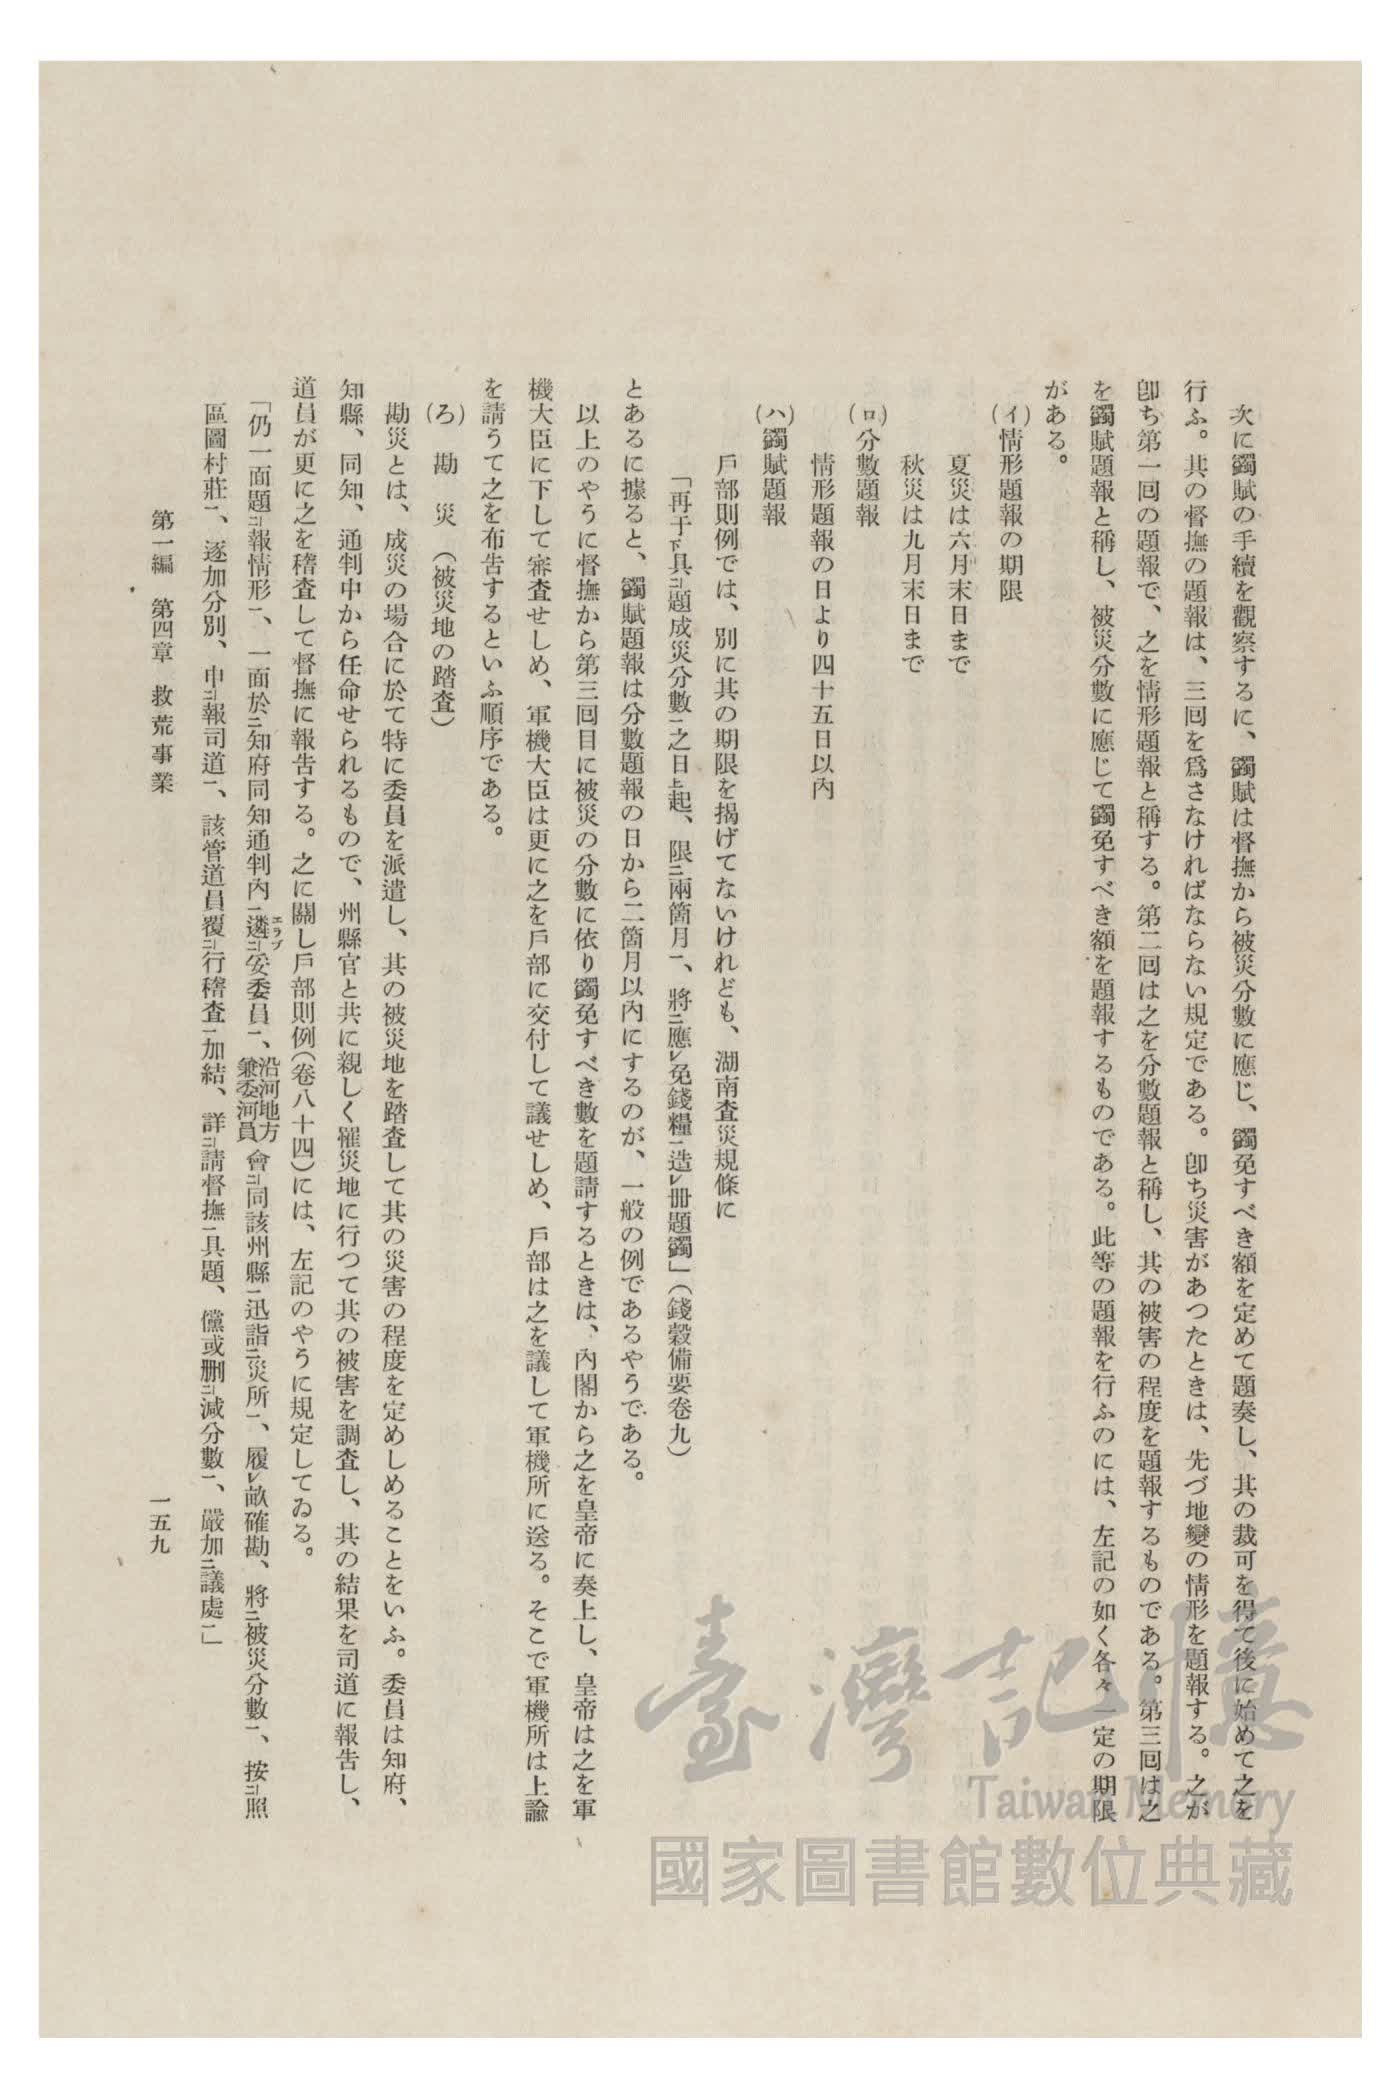 次に蠲賦の手續を觀察するに、蠲賦は督撫から被災分數に應じ、蠲免すべき額を定めて題奏し、其の裁可を得て後に始めて之を
行ふ。其の督撫の題報は、三回を爲さなければならない規定である。卽ち災害があつたときは、先づ地變の情形を題報する。之が
卽ち第一回の題報で、之を情形題報と稱する。第二回は之を分數題報と稱し、其の被害の程度を題報するものである。第三回は之
を蠲賦題報と稱し、被災分數に應じて蠲免すべき額を題報するものである。此等の題報を行ふのには、左記の如く各々一定の期限
がある。
(イ)情形題報の期限
夏災は六月末日まで
秋災は九月末日まで
(ロ)分數題報
情形題報の日より四十五日以內
(ハ)蠲賦題報
戶部則例では、別に其の期限を揭げてないけれども、湖南査災規條に
「再于下具二題成災分數一之日上起、限二兩箇月一、將二應レ免錢糧一造レ册題蠲」(錢穀備要卷九)
とあるに據ると、蠲賦題報は分數題報の日から二箇月以內にするのが、一般の例であるやうである。
以上のやうに督撫から第三回目に被災の分數に依り蠲免すべき數を題請するときは、內閣から之を皇帝に奏上し、皇帝は之を軍
機大臣に下して審査せしめ、軍機大臣は更に之を戶部に交付して議せしめ、戶部は之を議して軍機所に送る。そこで軍機所は上諭
を請うて之を布吿するといふ順序である。
(ろ) 勘 災 (被災地の踏査)
勘災とは、成災の場合に於て特に委員を派遣し、其の被災地を踏査して其の災害の程度を定めしめることをいふ。委員は知府、
知縣、同知、通判中から任命せられるもので、州縣官と共に親しく罹災地に行つて其の被害を調査し、其の結果を司道に報吿し、
道員が更に之を稽査して督撫に報吿する。之に關し戶部則例(卷八十四)には、左記のやうに規定してゐる。
「仍一面題二報情形一、一面於二知府同知通判內一遴エラブ二妥委員一、沿河地方兼委河員會二同該州縣一迅詣二災所一、履レ畝確勘、將二被災分數一、按二照
區圖村莊一、逐加分別、申二報司道一、該管道員覆二行稽査一加結、詳二請督撫一具題、儻或删二減分數一、嚴加二議處一」
第一編 第四章 救荒事業
一五九
臺灣記憶
Taiwan Memory
國家圖書館數位典藏